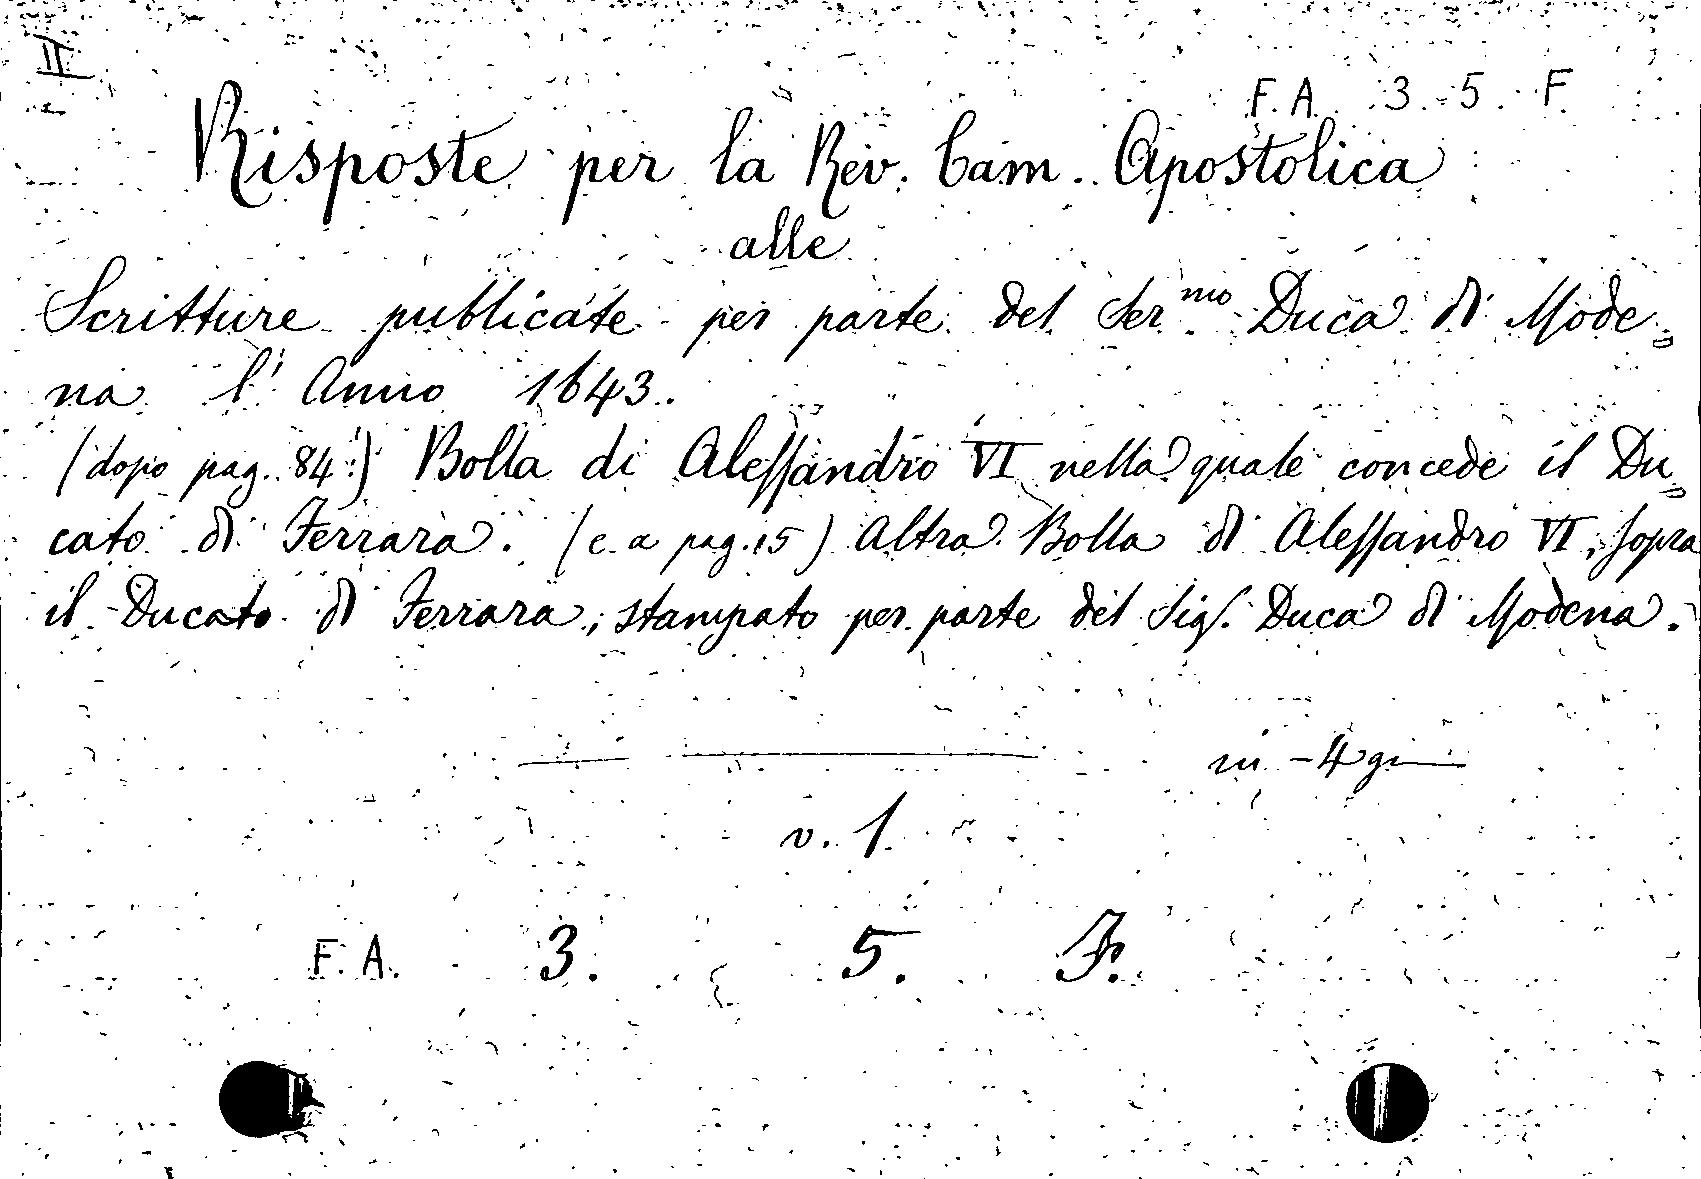 II
F. A. 3. 5. F
Risposte per la Rev. Cam. Apostolica
alle
Scritture publicate per parte del Ser.mo Duca di Mode„
na l' Anno 1643.
(dopo pag. 84.) Bolla di Alessandro VI nella quale concede il Du„
cato di Ferrara. (e a pag. 15) Altra Bolla di Alessandro VI, sopra
il Ducato di Ferrara, stampato per parte del Sig. Duca di Modena.
in - 4 g
v. 1.
F. A. 3. 5. F.